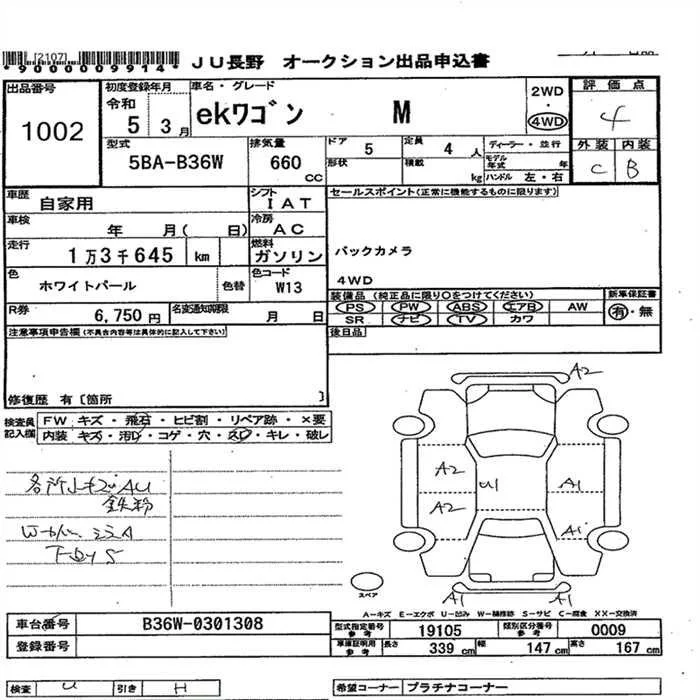 [2107]
*9000009914*
JU長野 オークション出品申込書
出品番号
1002
初度登録年月
令和
5 3月
車名・グレード
ekワゴン M
2WD
・
4WD
評価点
4
外装 内装
C B
型式
5BA-B36W
排気量
660
cc
ドア 5
形状
定員 4 人
積載 kg
ディーラー・並行
モデル年式 年
ハンドル 左・右
車歴
自家用
シフト
IAT
セールスポイント(正常に機能するものに限ります)
バックカメラ
4WD
車検
年 月( 日)
冷房
AC
走行
1万3千645 km
燃料
ガソリン
色
ホワイトパール
色替
色コード
W13
装備品(純正品に限り○をつけてください)
PS PW ABS エアB AW
SR ナビ TV カワ
新車保証書
有・無
R券
6,750 円
名変通知期限
月 日
後日品
注意事項申告欄(不具合内容等は具体的に記入して下さい)
修復歴 有〔箇所 〕
検査員
記入欄
FW キズ・飛石・ヒビ割・リペア跡・×要
内装 キズ・汚レ・コゲ・穴・スレ・キレ・破レ
A2
A2
U1
A1
A2
A1
A1
A1
各所小キズAU
鉄粉
スペア
A-キズ E-エクボ U-凹み W-補修跡 S-サビ C-腐食 XX-交換済
車台番号
B36W-0301308
登録番号
型式指定番号
参考
19105
類別区分番号
参考
0009
車庫証明用
参考
長さ 339 cm
幅 147 cm
高さ 167 cm
検査 U
引き H
希望コーナー プラチナコーナー